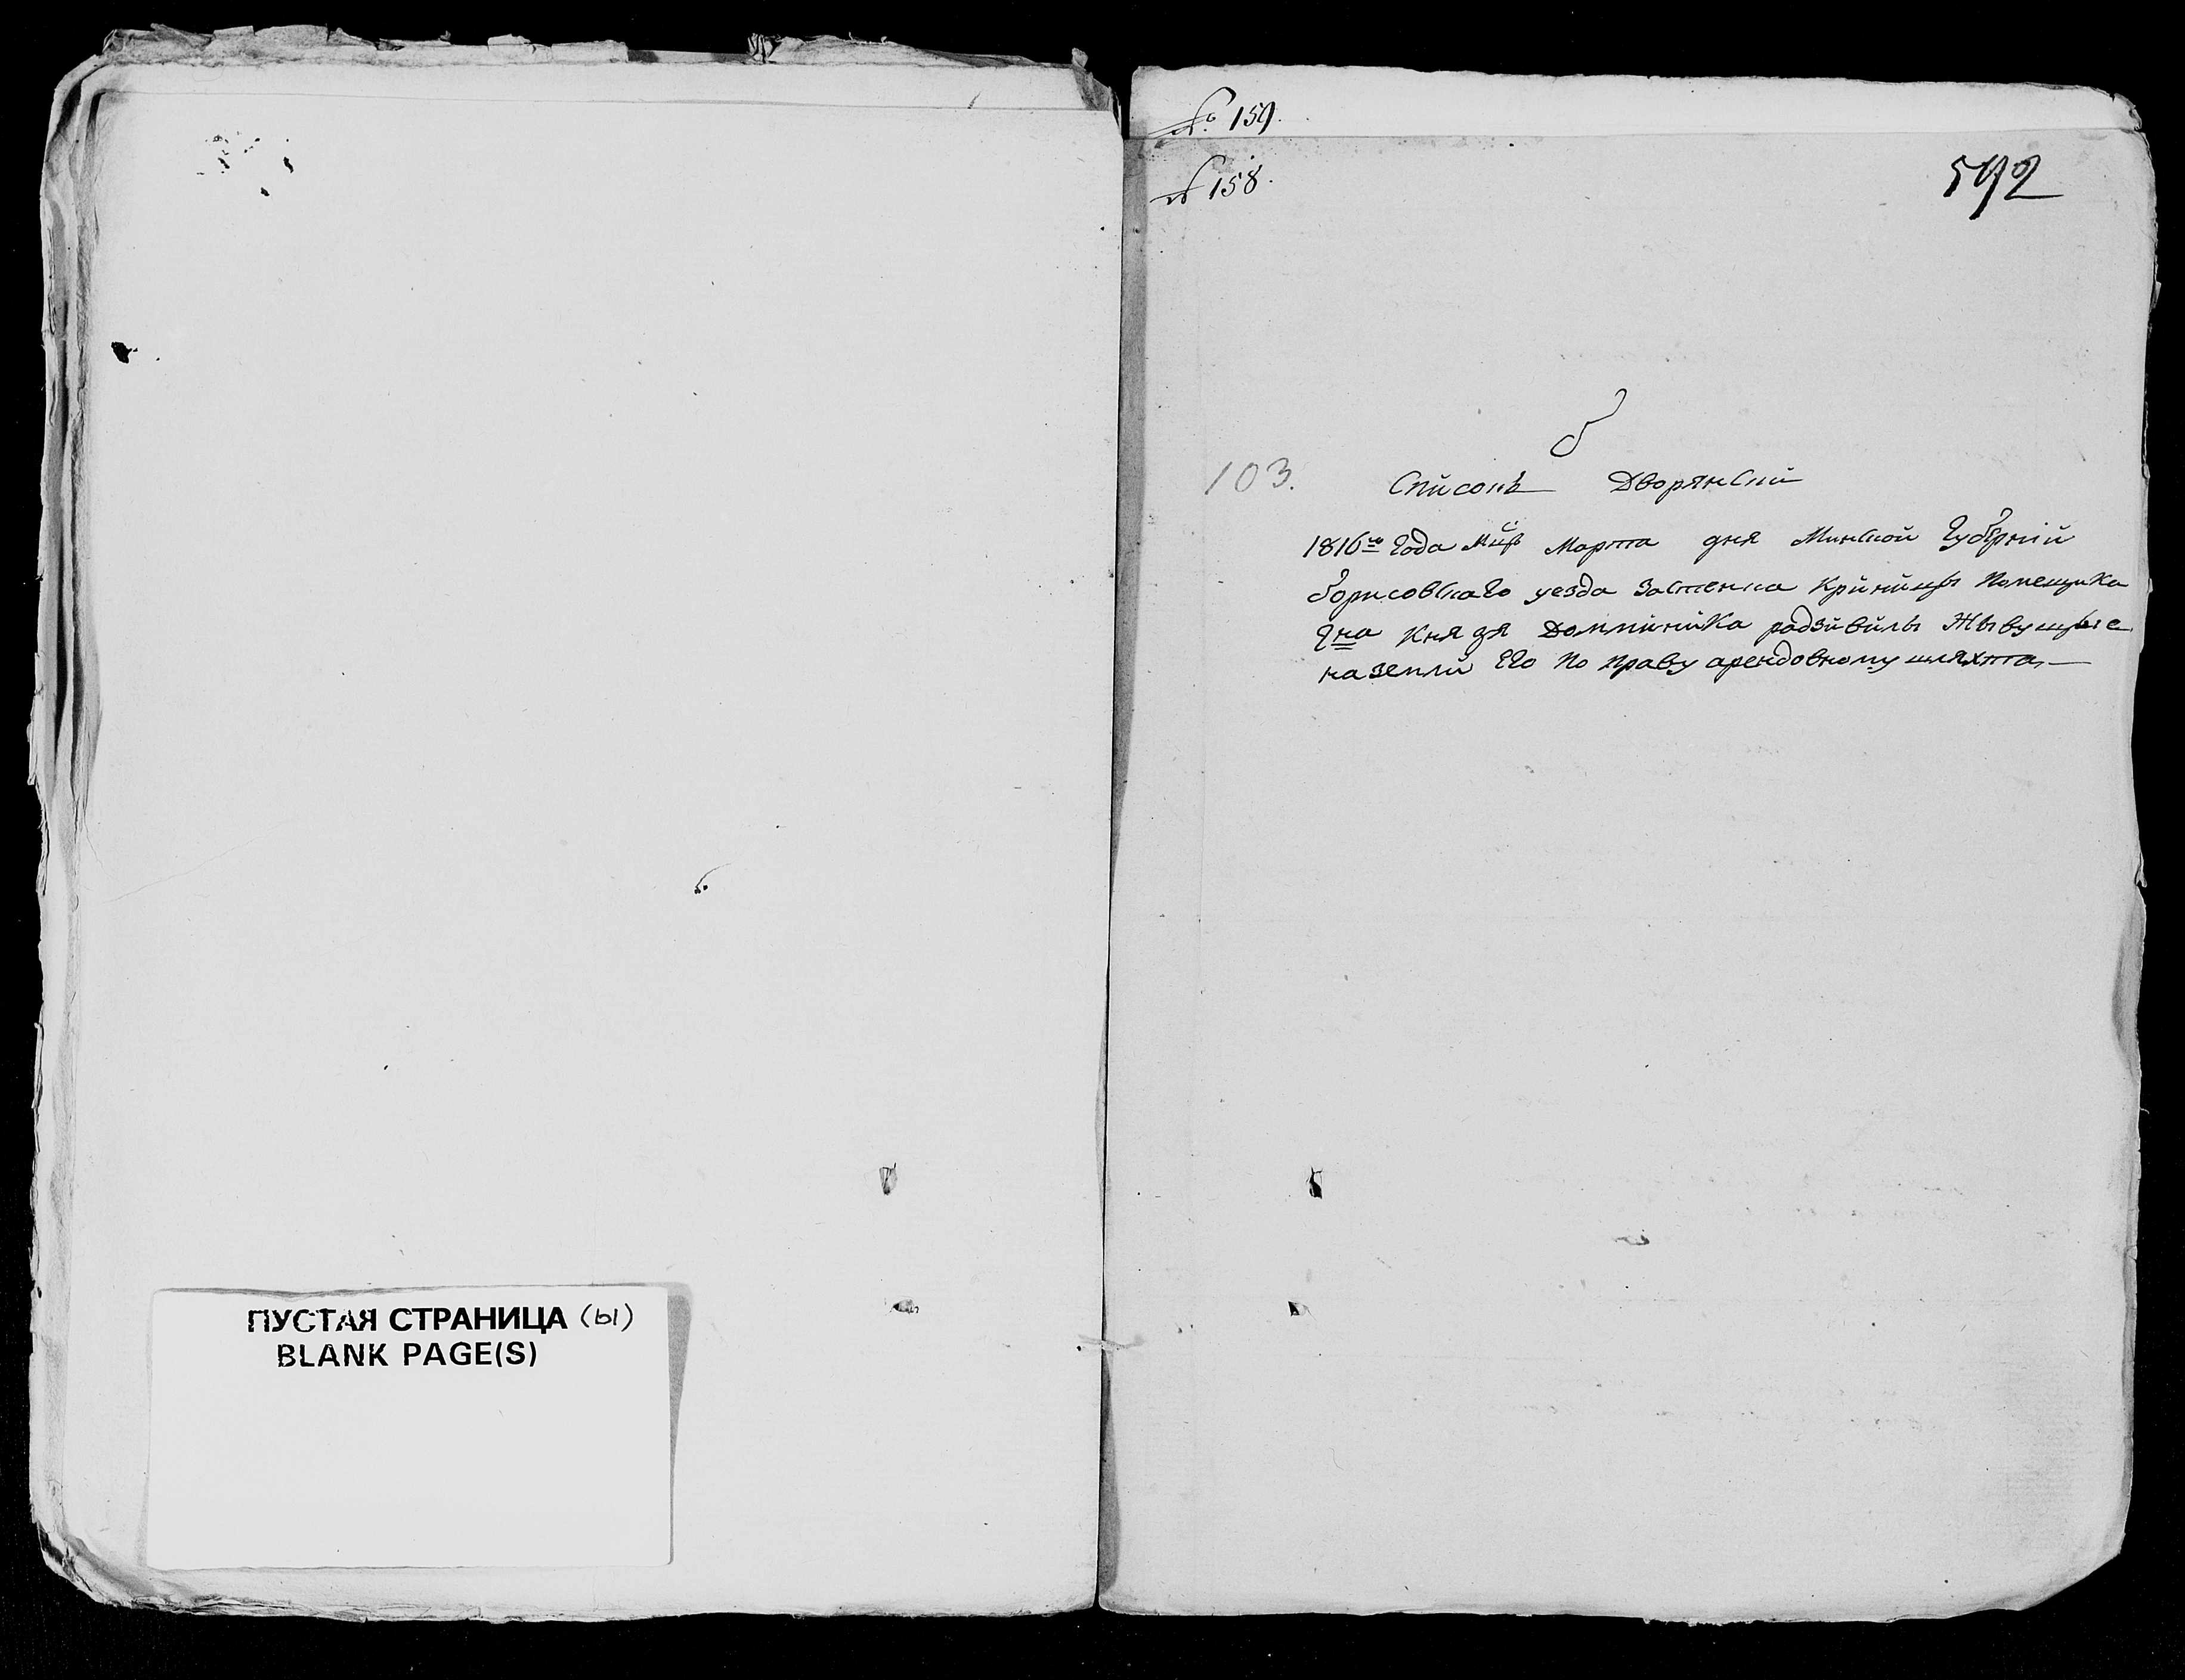 ПУСТАЯ СТРАНИЦА (ы)
BLANK PAGE(S)
№ 159.
№ 158.
592
103.
Список Дворянский
1816го Года Мца Марта дня Минской Губернии
борисовского уезда Застенка Криницы Помещика
Гна Князя Доминика радзивилы Жывущые
на земли Его По Праву арендовному шляхта